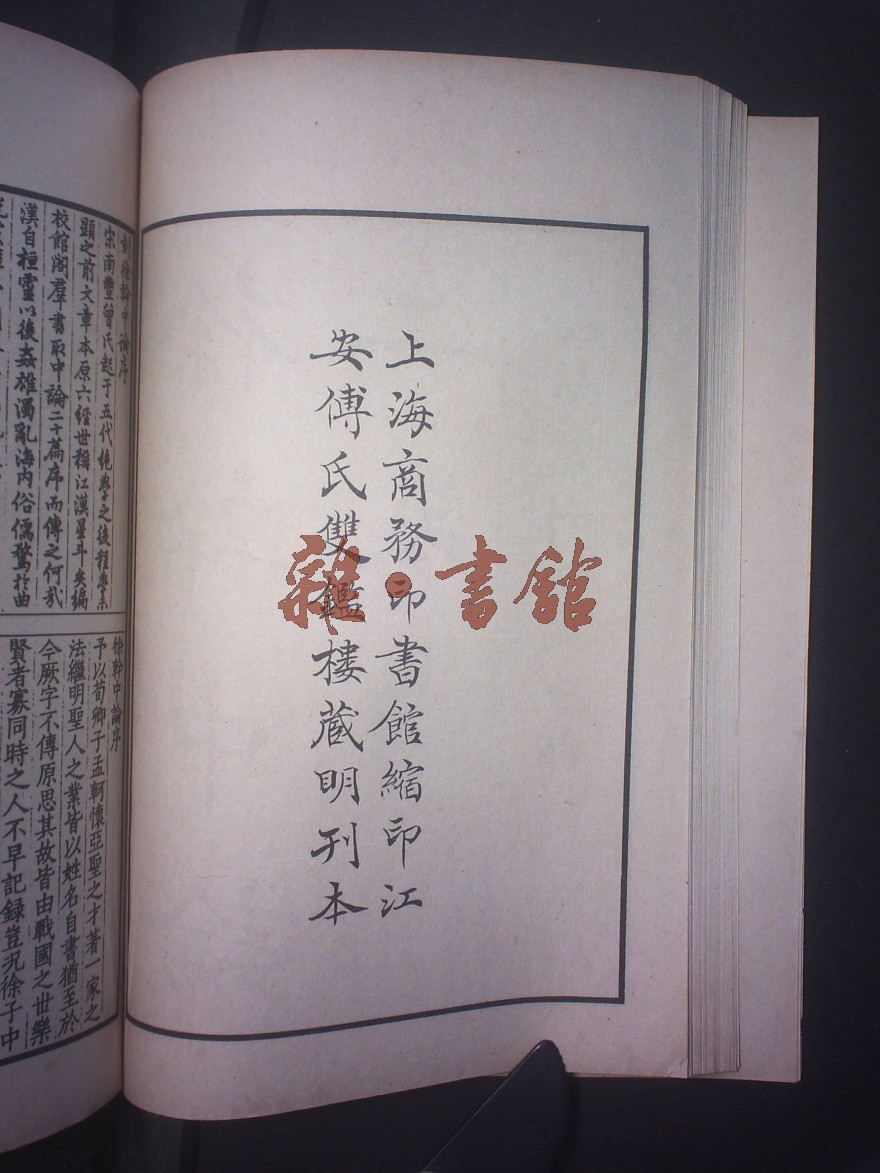 上海商務印書館縮印江
安傅氏雙鑑樓蔵明刊本
雜·書館
徐幹中論序
宋南豐曾氏起于五代絶學之後程學未
顯之前文章本原六經世稱江漢星斗矣編
校館閣羣書取中論二十篇序而傳之何哉
漢自桓靈以後姦雄濁亂海内俗儒騖於曲
徐幹中論序
予以荀卿子孟軻懷亞聖之才著一家之
法繼明聖人之業皆以姓名自書猶至於
今厥字不傳原思其故皆由戰國之世樂
賢者寡同時之人不早記録豈況徐子中